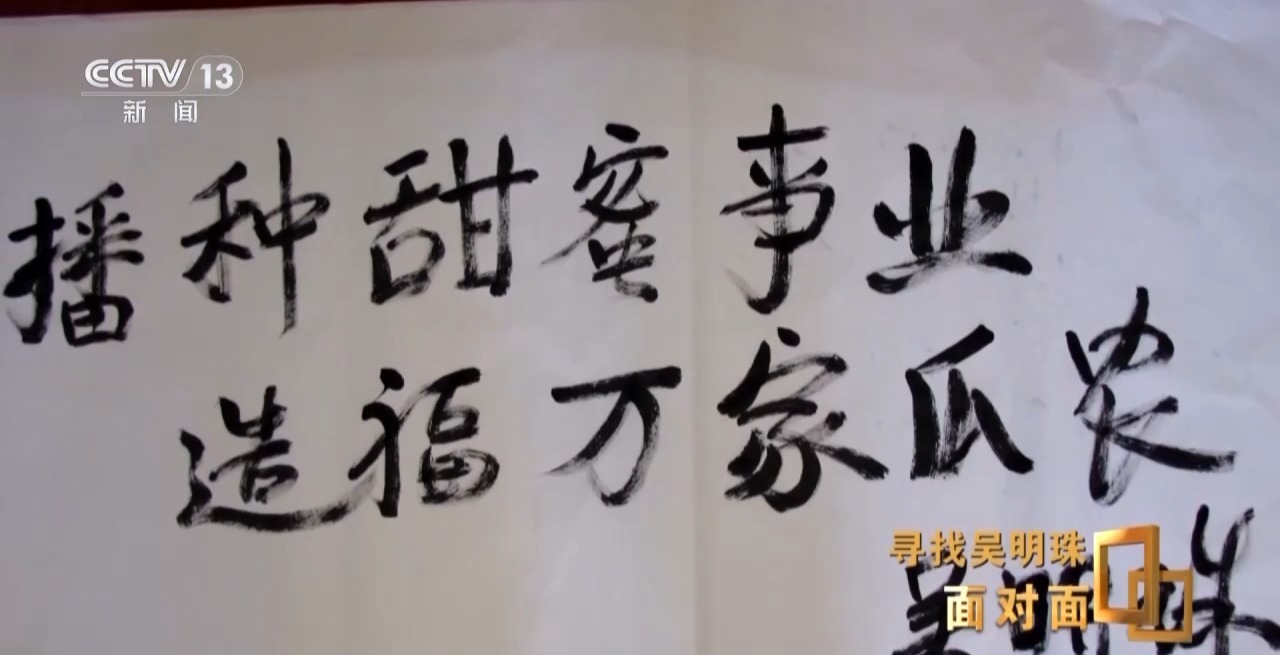 CCTV 13
新闻
播种甜蜜事业
造福万家瓜农
寻找吴明珠
面对面
吴明珠